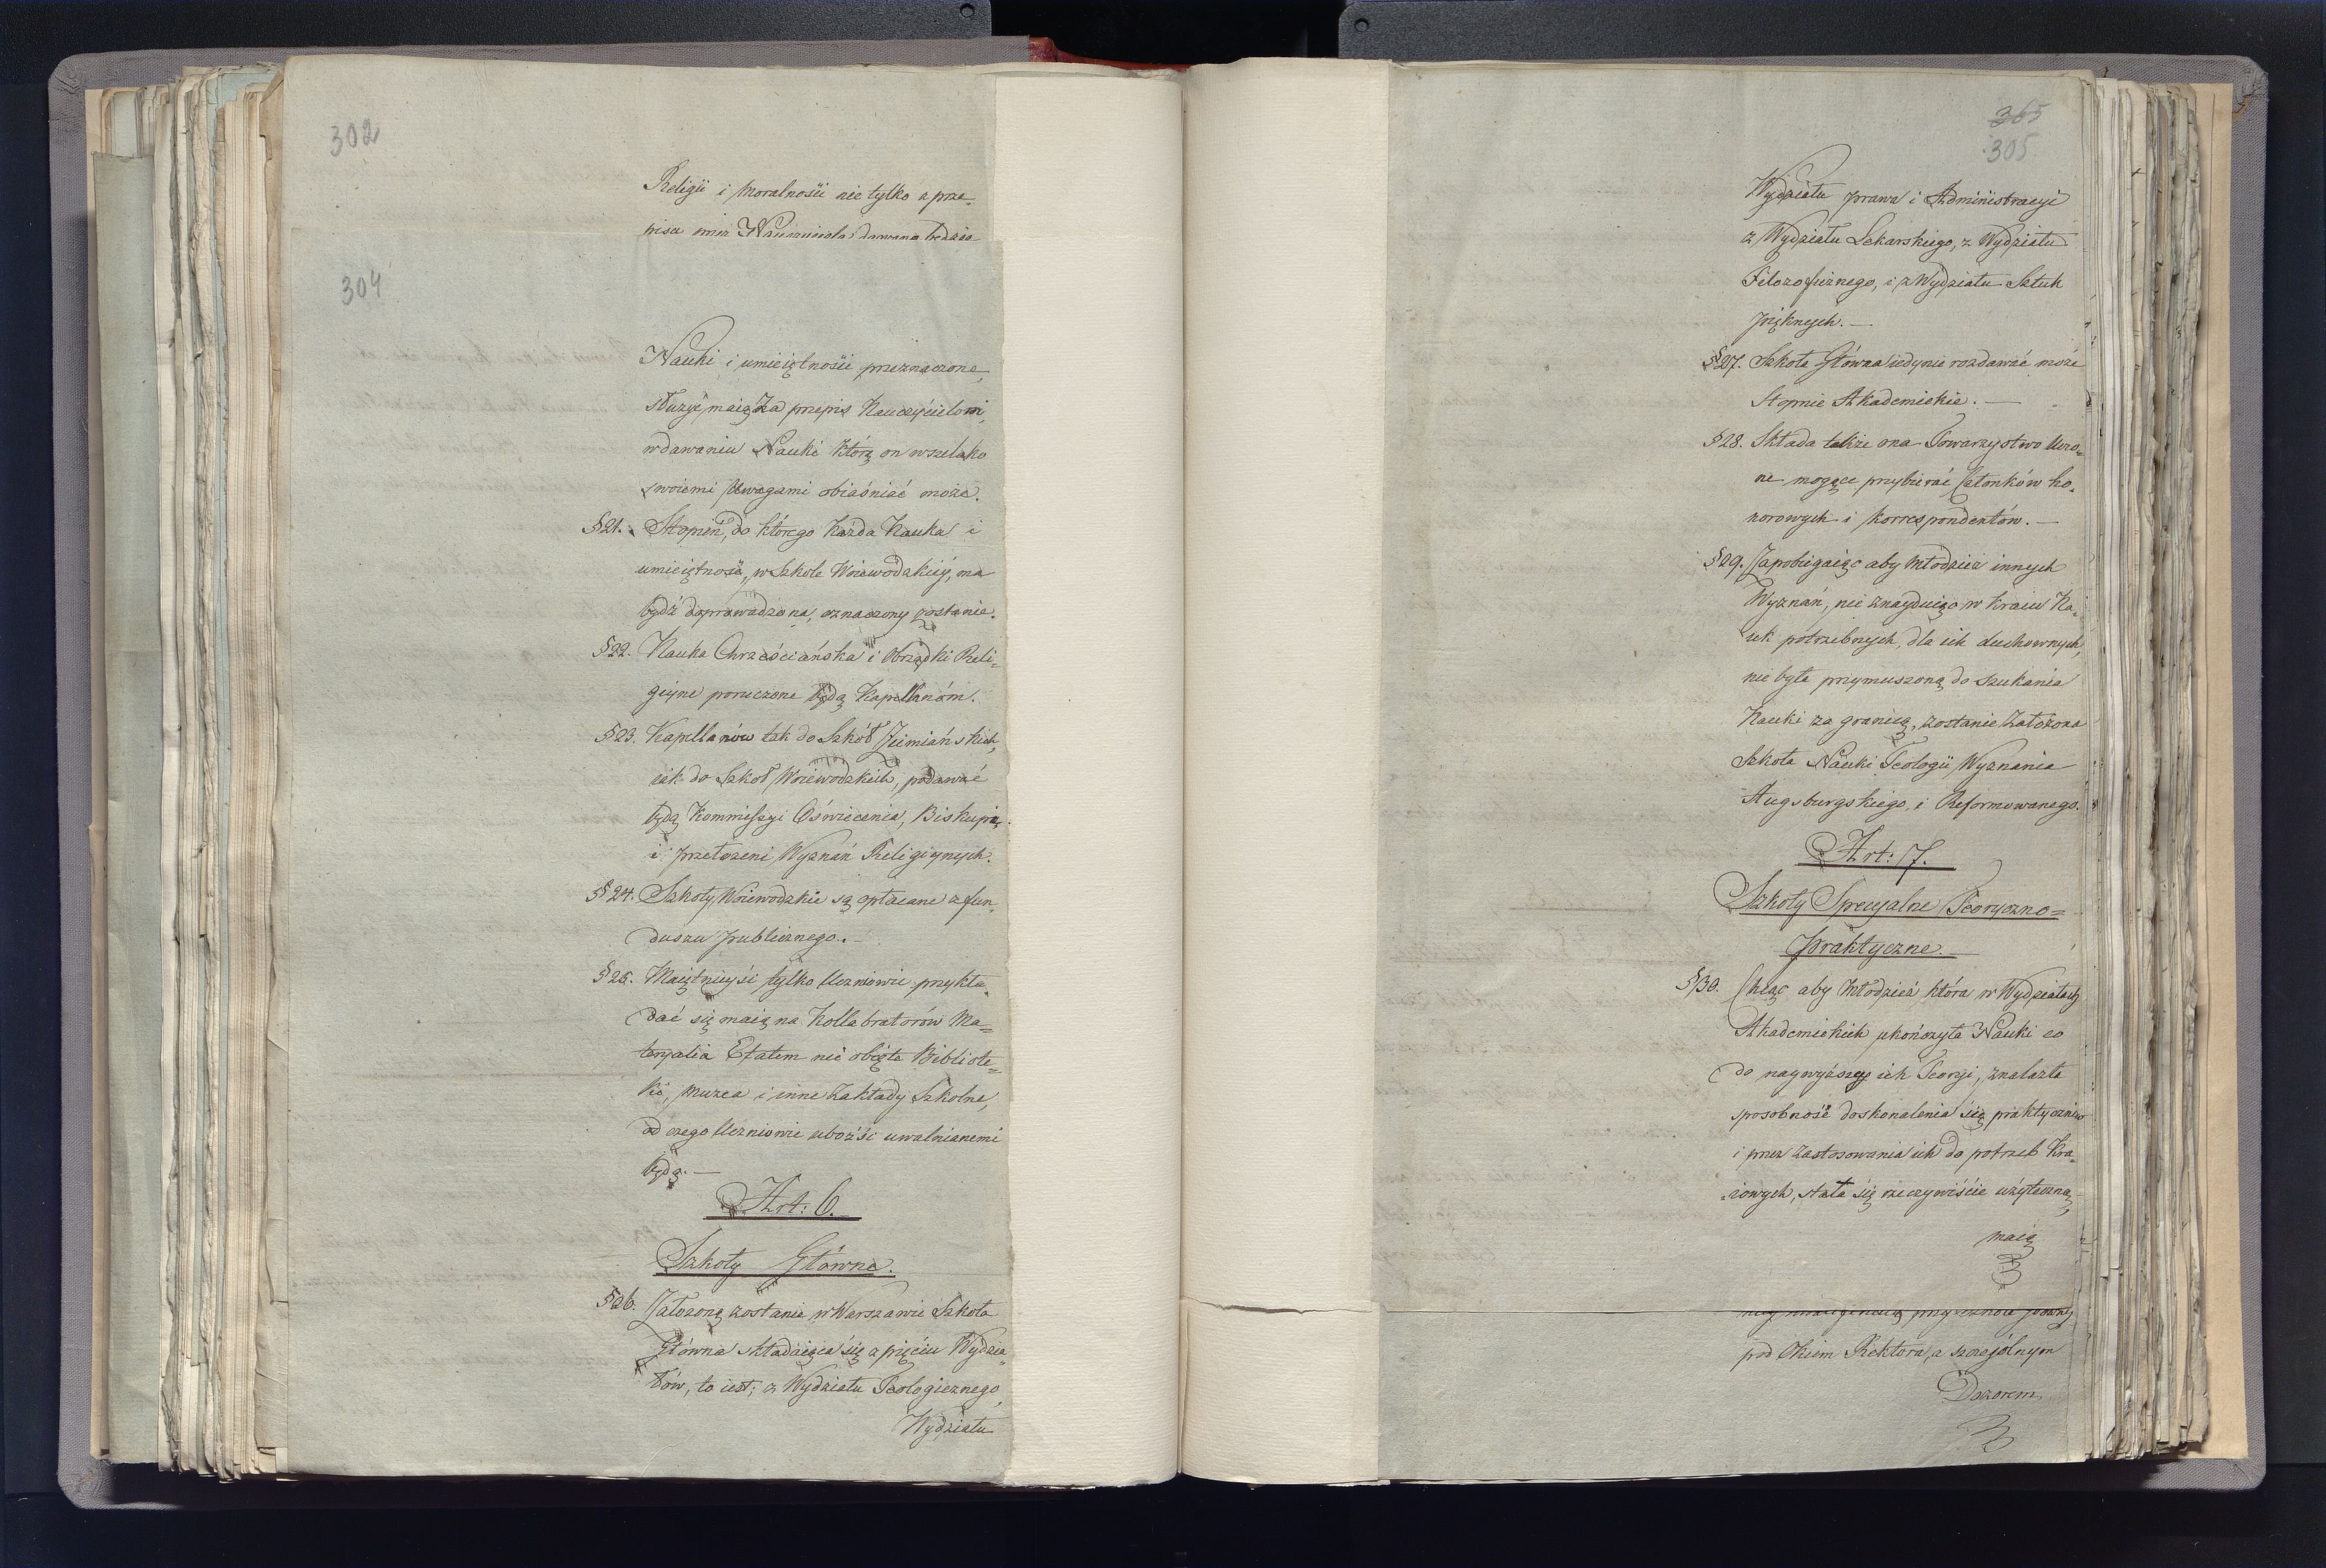 302
Religii i Moralnosći nie tylko z prze-
pisu
304
Nauki i umieiętnosći przeznaczone,
służyć maią za przepis Nauczycielowi,
w dawaniu Nauki którą on wszelako
swoiemi Uwagami obiaśniać może.
§ 21. Stopień, do którego każda Nauka i
umieiętność, w Szkole Woiewodzkiéy, ma
bydź doprowadzona, oznaczony zostanie.
§ 22. Nauka Chrześciańska i Obrządki Reli-
giyne poruczone będą Kapellanóm.
§ 23. Kapellanów tak do Szkół Ziemiańskich,
iak do Szkół Woiewodzkich, podawać
będą Kommissyi Oświecenia, Biskupi,
i przełożeni Wyznań Religiynych.
§ 24. Szkoły Woiewodzkie są opłacane z fun-
duszu publicznego. —
§ 25. Maiętnieysi tylko Uczniowie przykła-
dać się maią na Kollabratorów Ma-
teryalia Etatem nie obięte Bibliote-
ki, Muzea i inne Zakłady Szkolne,
od czego Uczniowie ubożsi uwalnianemi
będą. —
Art: 6.
Szkoły Główne.
§ 26. Założoną zostanie w Warszawie Szkoła
Główna składaiąca się z pięciu Wydzia-
łów, to iest; z Wydziału Teologicznego,
Wydziału
365
305
Wydziału prawa i Administracyi
z Wydziału Lekarskiego, z Wydziału
Filozoficznego, i z Wydziału Sztuk
pięknych. —
§ 27. Szkoła Główna iedynie rozdawać może
Stopnie Akademickie. —
§ 28. Składa także ona Towarzystwo Uczo-
ne mogące przybierać Członków ho-
norowych i Korrespondentów. —
§ 29. Zapobiegaiąc aby Młodzież innych
Wyznań, nie znayduiąc w kraiu Na-
uk potrzebnych, dla ich duchownych,
nie była przymuszoną do szukania
Nauki za granicą, zostanie Założona
Szkoła Nauki Teologii Wyznania
Augsburgskiego, i Reformowanego.
Art: 7.
Szkoły Specyalne Teoryczno=
praktyczne. —
§ 30. Chcąc aby Młodzież która w Wydziałach
Akademickich ukończyła Nauki co
do naywyższey ich Teoryi, znalazła
sposobność doskonalenia się praktycznie
i przez zastosowania ich do potrzeb Kra-
iowych, stała się rzeczywiście użyteczną,
maią
pod Okiem Rektora, a szczególnym
Dozorem